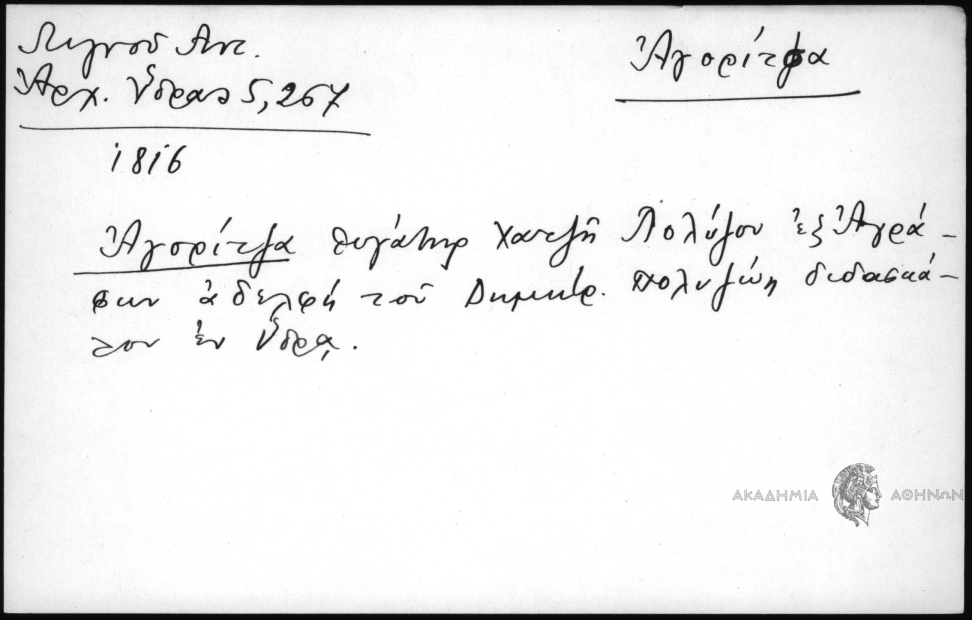 Λιγνού Αντ.
Ἀρχ. Ὕδρας 5, 267
Ἀγορίτσα
1816
Ἀγορίτζα θυγάτηρ Χατζῆ Πολύζου ἐξ Ἀγρά-
φων ἀδελφή τοῦ Δημητρ. Πολυζώη διδασκά-
λου ἐν Ὕδρᾳ.
ΑΚΑΔΗΜΙΑ ΑΘΗΝΩΝ